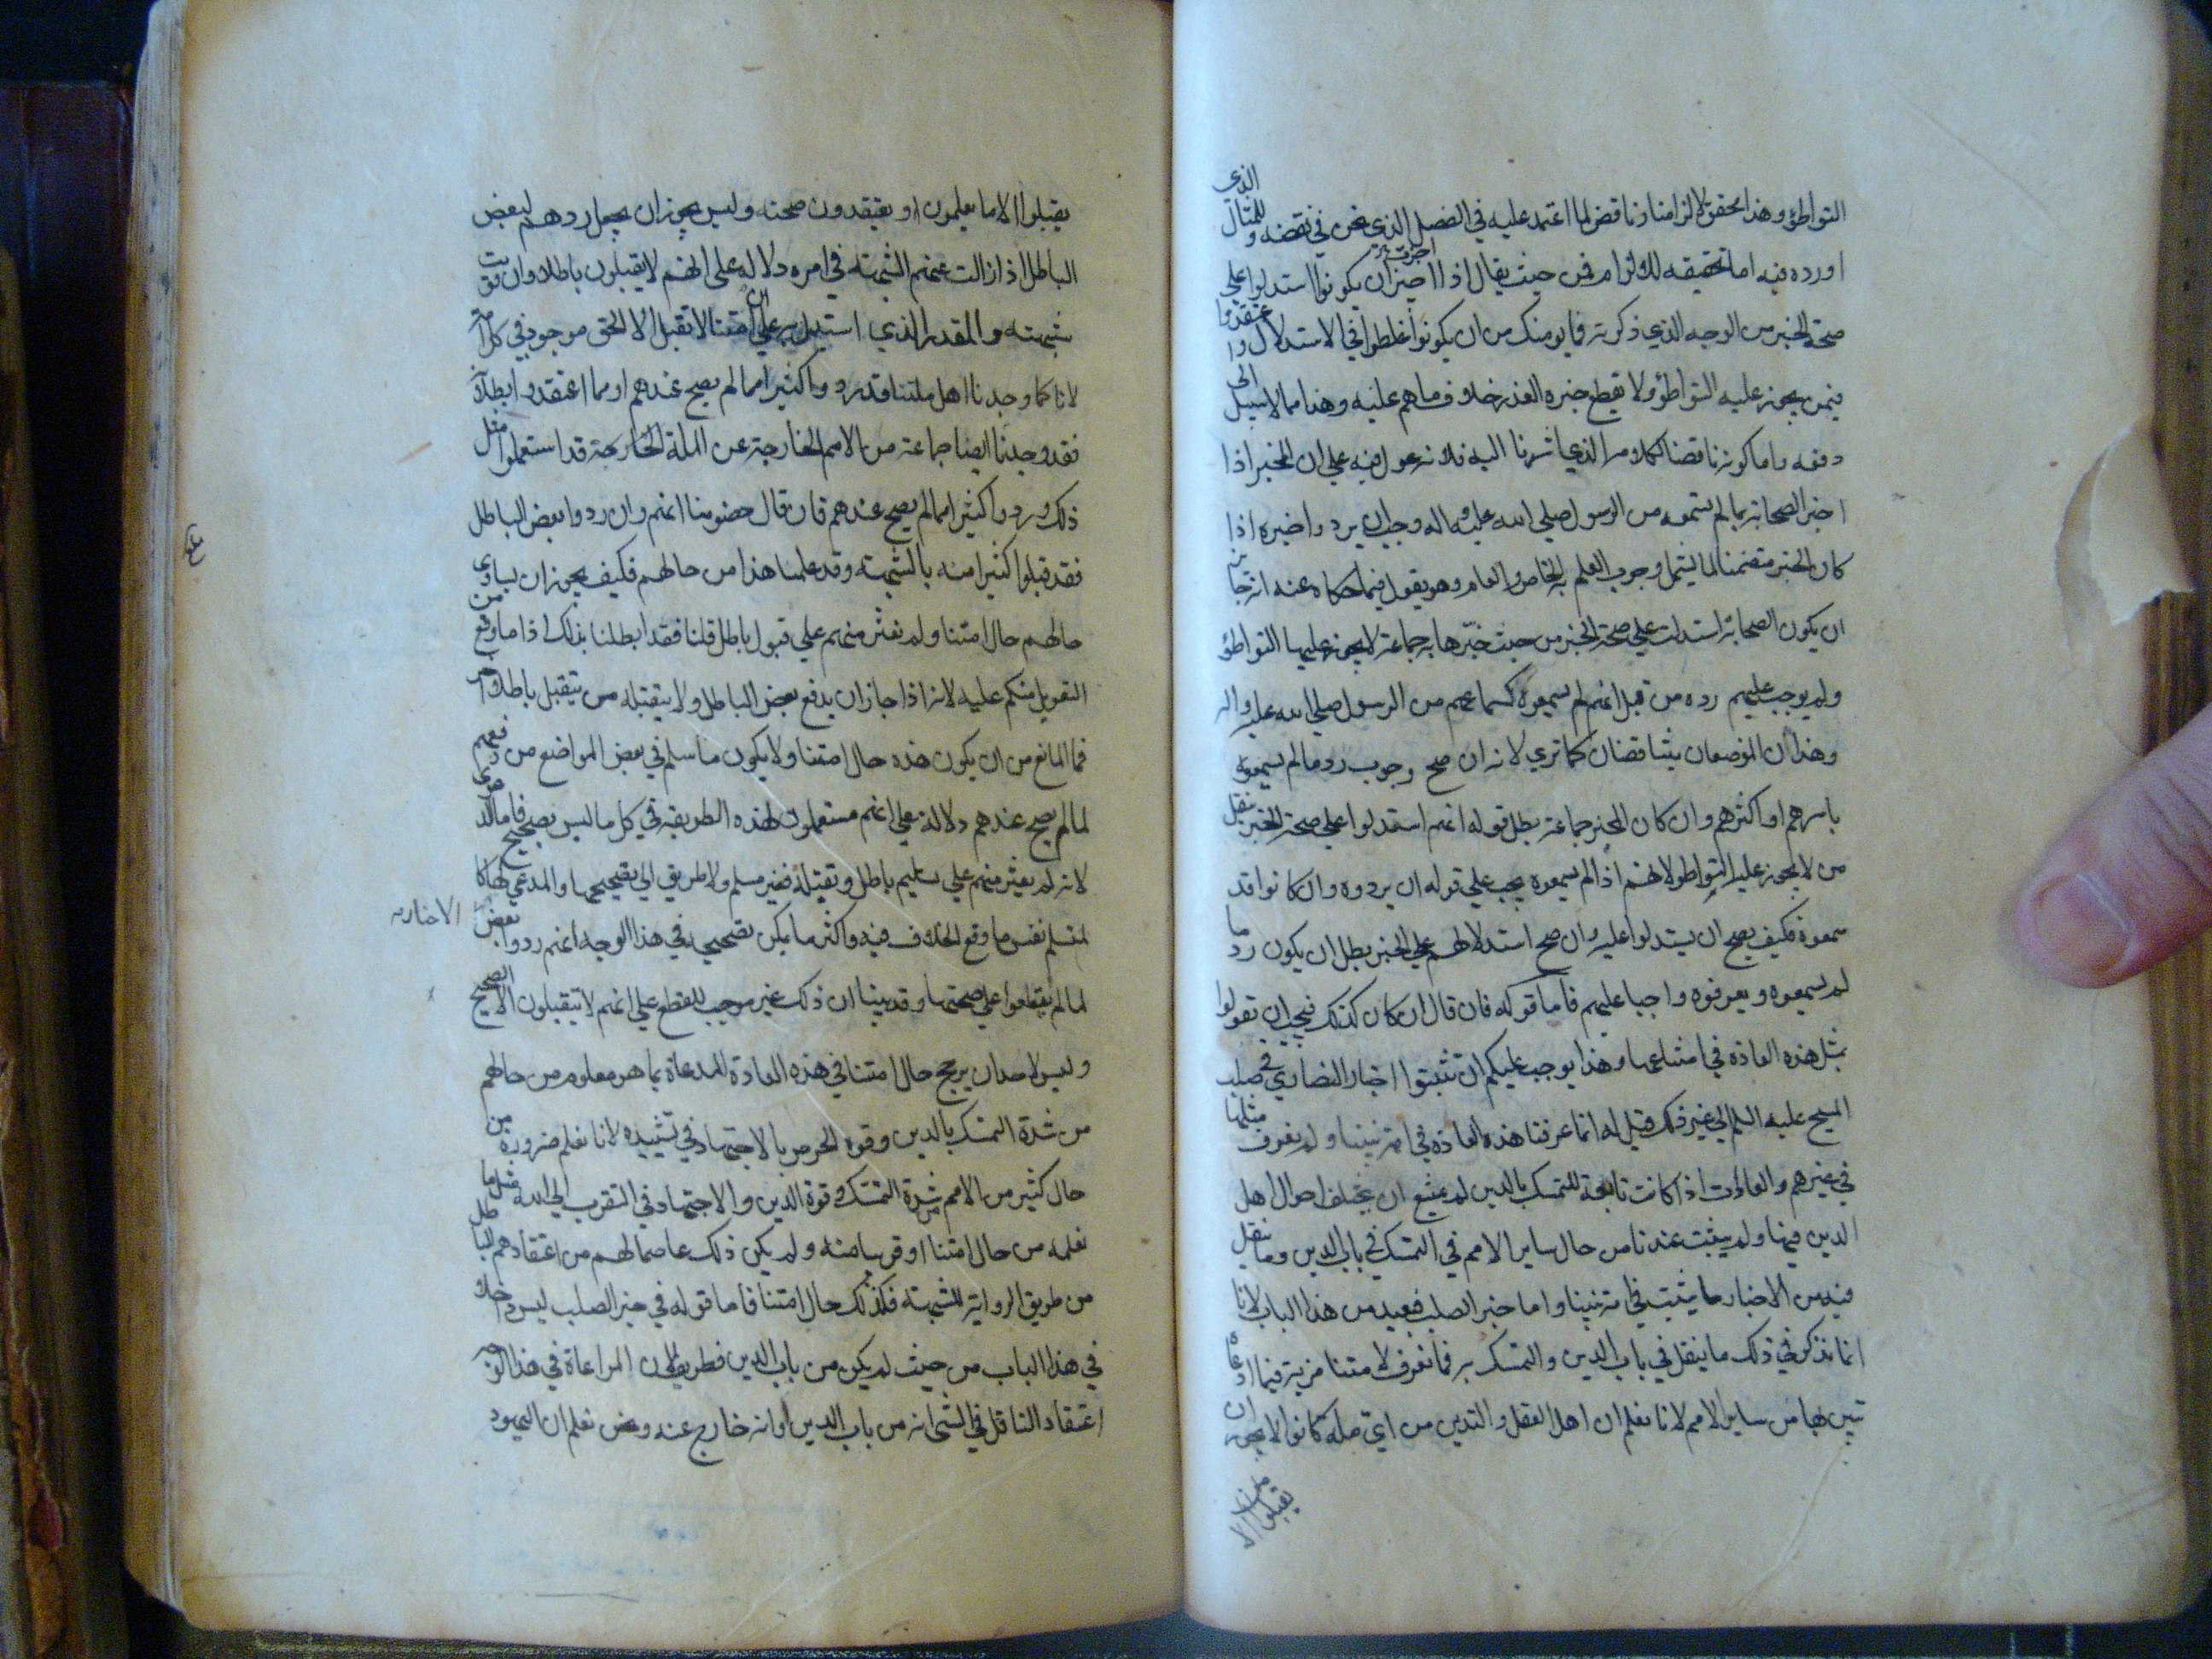 التواطؤ وهذا محقق لالزامنا وناقض لما اعتمد عليه في الفصل الذي نحن في نقضه وللمثال الذي
اورده فيه اما تحقيقه للالزام فمن حيث يقال اذا اجزت ان يكونوا استدلوا علي
صحة الخبر من الوجه الذي ذكرته فما يومنك من ان يكونوا غلطوا في الاستدلال واعتقدوا
فيمن يجوز عليه التواطؤ ولا يقطع خبره العذر خلاف ما هم عليه وهذا مما لا سبيل الى
دفعه واما كونه ناقضا لكلامه الذي اشرنا اليه فلانه عول فيه علي ان المخبر اذا
اخبر الصحابة بما لم تسمعه من الرسول صلي الله عليه واله وجب ان يرد واخبره اذا
كان الخبر متضمنا لما يشمل وجوب العلم به الخاص والعام وهو يقول فيما حكاه عنه انه جائز
ان يكون الصحابة استدلت علي صحة الخبر من حيث خبرها به جماعة لا يجوز عليها التواطؤ
ولم يوجب عليهم رده من قبل انهم لم يسمعوه كسماعهم من الرسول صلي الله عليه واله
وهذان الموضعان يتناقضان كما تري لانه ان صح وجوب رد ما لم يسمعوه
باسرهم او اكثرهم وان كان المخبر جماعة بطل قوله انهم استدلوا علي صحة الخبر بنقل
من لا يجوز عليه التواطؤ لانهم اذا لم يسمعوه يجب علي قوله ان يردوه وان كانوا قد
سمعوه فكيف يصح ان يستدلوا عليه وان صح استدلالهم علي الخبر بطل ان يكون رد ما
لم يسمعوه ويعرفوه واجبا عليهم فاما قوله فان قال ان كان كذلك فيجب ان تقولوا
بمثل هذه العادة في امثنا وهذا يوجب عليكم ان تثبتوا اخبار النصاري في صلب
المسيح عليه السلم الي غير ذلك قيل له انما عرفنا هذه العادة في امة نبينا ولم نعرف مثلها
في غيرهم والعادات اذا كانت تابعة للتمسك بالدين لم يمتنع ان يختلف احوال اهل
الدين فيها ولم يثبت عندنا من حال ساير الامم في التمسك في باب الدين وما ينقل
فيه من الاخبار ما يثبت في امة نبينا واما خبر الصلب فبعيد من هذا الباب لانا
انما نذكر في ذلك ما ينقل في باب الدين والتمسك به فما نعرف لامتنا مزية فيما ادعاه
تبين بها من ساير الامم لانا نعلم ان اهل العقل والتدين من اي ملة كانوا لا يجوز ان
يقبلوا الا ما
يقبلوا الا ما يعلمون او يعتقدون صحته وليس يجوز ان يجعل ردهم لبعض
الباطل اذا زالت عنهم الشبهة في امره دلالة على انهم لا يقبلون باطلا وان قويت
شبهته والمقدر الذي استدل به علي ان امتنا لا تقبل الا الحق موجود في كل امة
لانا كما وجدنا اهل ملتنا قد ردوا كثيرا مما لم يصح عندهم او مما اعتقدوا بطلانه
فقد وجدنا ايضا جماعة من الامم الخارجة عن الملة قد استعملوا مثل
ذلك وردوا كثيرا مما لم يصح عندهم فان قال خصومنا انهم وان ردوا بعض الباطل
فقد قبلوا كثيرا منه بالشبهة وقد علمنا هذا من حالهم فكيف يجوز ان يساوي
حالهم حال امتنا ولم نعثر منهم علي قبول باطل قلنا فقد ابطلنا بذلك اذا ما وقع من
التعويل منكم عليه لانه اذا جاز ان يدفع بعض الباطل ولا يتقبله من يتقبل باطلا اخر
فما المانع من ان يكون هذه حال امتنا ولا يكون ما سلم في بعض المواضع من دفعهم
لما لم يصح عندهم دلالة علي انهم مستعملون لهذه الطريقة في كل ما ليس بصحيح فاما الدعوى
لانه لم يعثر منهم علي تسليم باطل وتقبله فغير مسلم ولا طريق الي تصحيحها والمدعي لها كا
لمتسلم نفس ما وقع الخلاف فيه واكثر ما يمكن تصحيحه في هذا الوجه انهم ردوا بعض
الاخبار
لما لم يقطعوا علي صحتها وقد بينا ان ذلك غير موجب للقطع علي انهم لا يتقبلون الا الصحيح
وليس لاحد ان يرجح حال امتنا في هذه العادة المدعاة بما هو معلوم من حالهم
من شدة التمسك بالدين وقوة الحرص بالاجتهاد في تشييده لانا نعلم ضرورة من
حال كثير من الامم من شدة التمسك وقوة الدين والاجتهاد في التقرب الي الله مثل ما
نعلمه من حال امتنا او قريبا منه ولم يكن ذلك عاصما لهم من اعتقادهم الباطل
من طريق الرواية للشبهة فكذلك حال امتنا فاما قوله في خبر الصلب ليس داخلا
في هذا الباب من حيث لم يكن من باب الدين فطريف لان المراعاة في هذا الوجه
اعتقاد الناقل في الشيء انه من باب الدين او انه خارج عنه ونحن نعلم ان اليهود